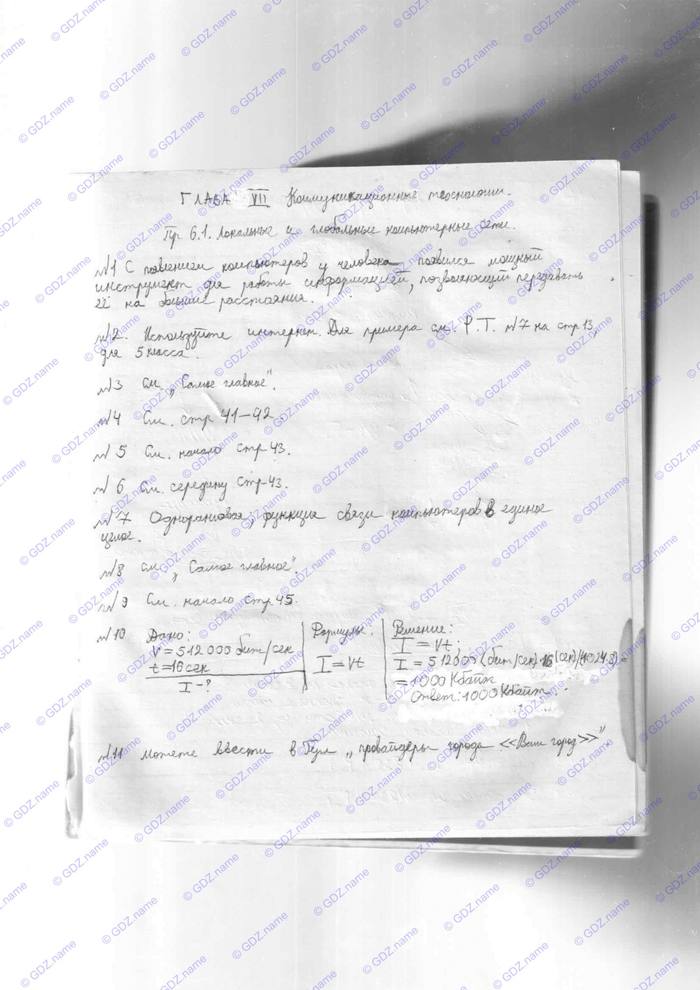 ГЛАВА VII Коммуникационные технологии.
Пр. 6.1. Локальные и глобальные компьютерные сети.
№1 С появением компьютеров у человека появился мощный
инструмент для работы с информацией, позволяющий передавать
её на большие расстояния.
№2. Используйте интернет. Для примера см. Р.Т. №7 на стр 13,
для 5 класса.
№3 См. „Самое главное".
№4 См. стр 41-42
№5 См. начало стр 43.
№6 См. середину стр 43.
№7 Одноранговая, функция связи компьютеров в единое
целое.
№8 См. „Самое главное".
№9 См. начало стр 45.
№10 Дано: Формулы. Решение:
V = 512 000 бит/сек I = Vt;
t = 16 сек I = Vt I = 512000 (бит/сек)·16 (сек)/(
I - ? = 1000 Кбайт
Ответ: 1000 Кбайт.
№11 Можете ввести в Гугл „провайдеры города <<Ваш город>>"
© GDZ.name